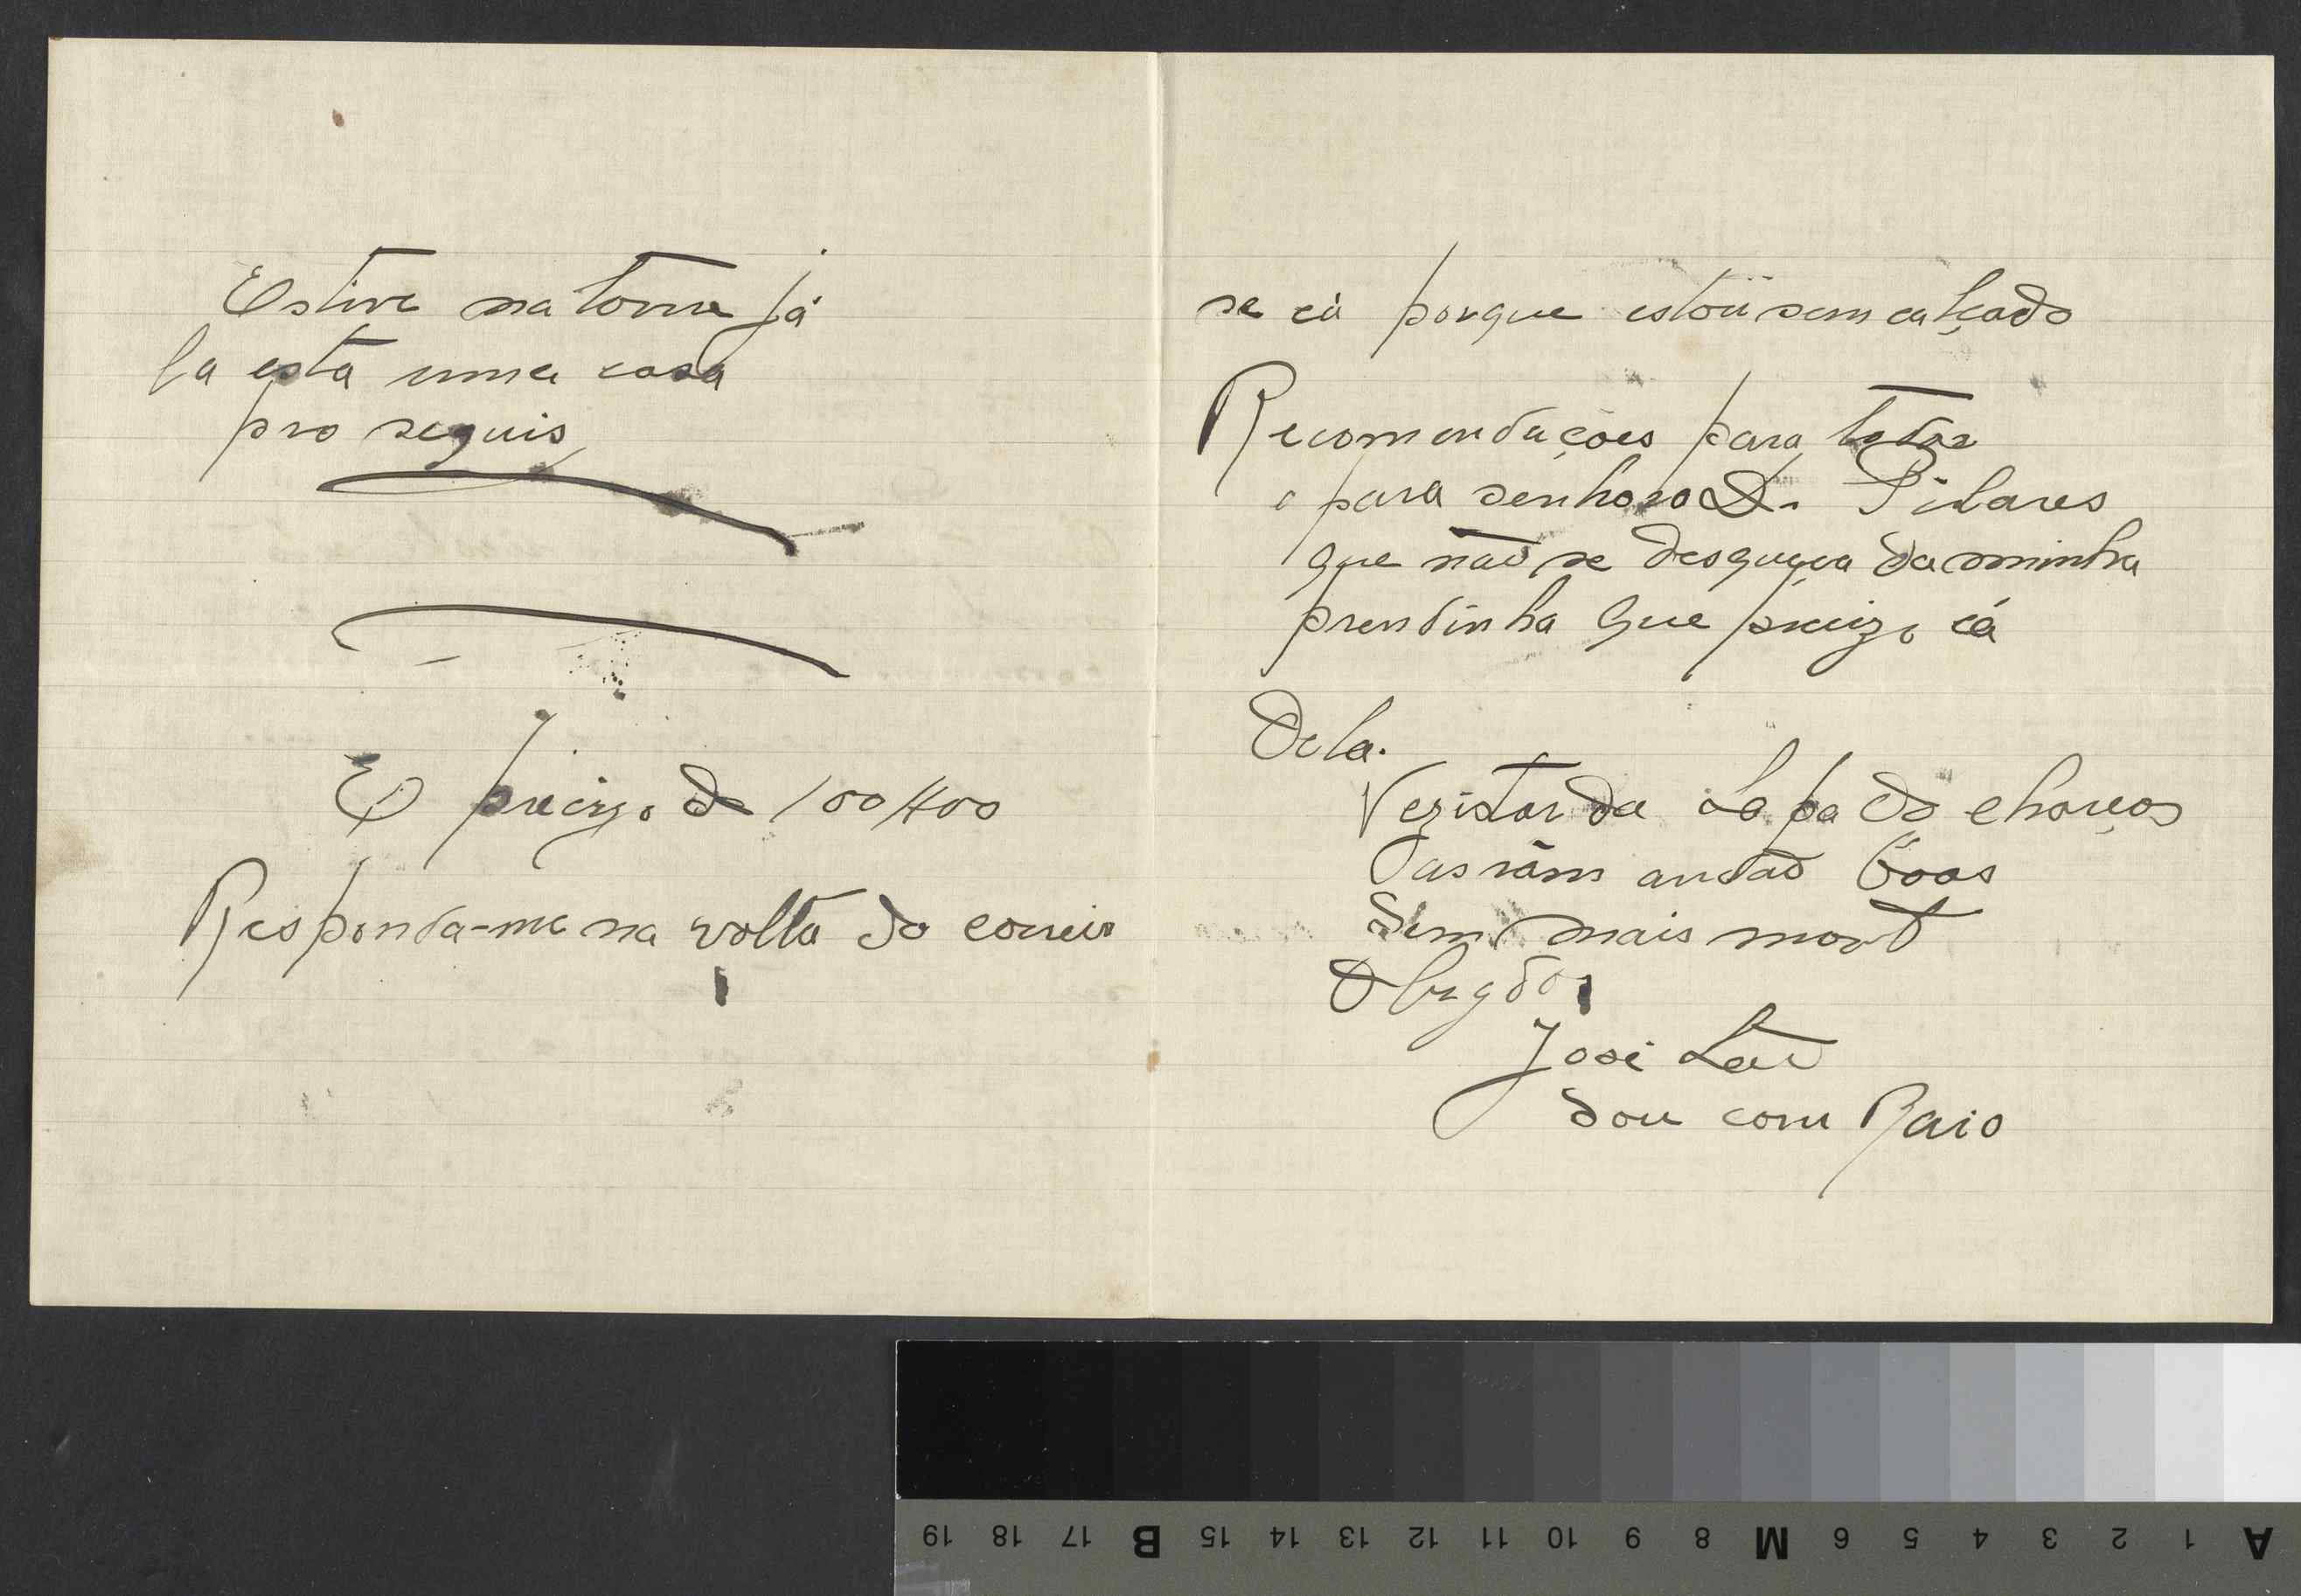 Estive na torre já
la esta uma casa
pro seguis
E preizo de 100#00
Responda-me na volta do correio
se cá porque estou sem calçado
Recomendações para todos
e para senhor o Dr Pilares
que não se desqueça da minha
prendinha que preizo cá
Dela.
Vezistar da Lapa do
andão boas
Sem mais
Obrgdo
José
dou com Raio
19 18 17 B 15 14 13 12 11 10 9 8 M 6 5 4 3 2 1 A